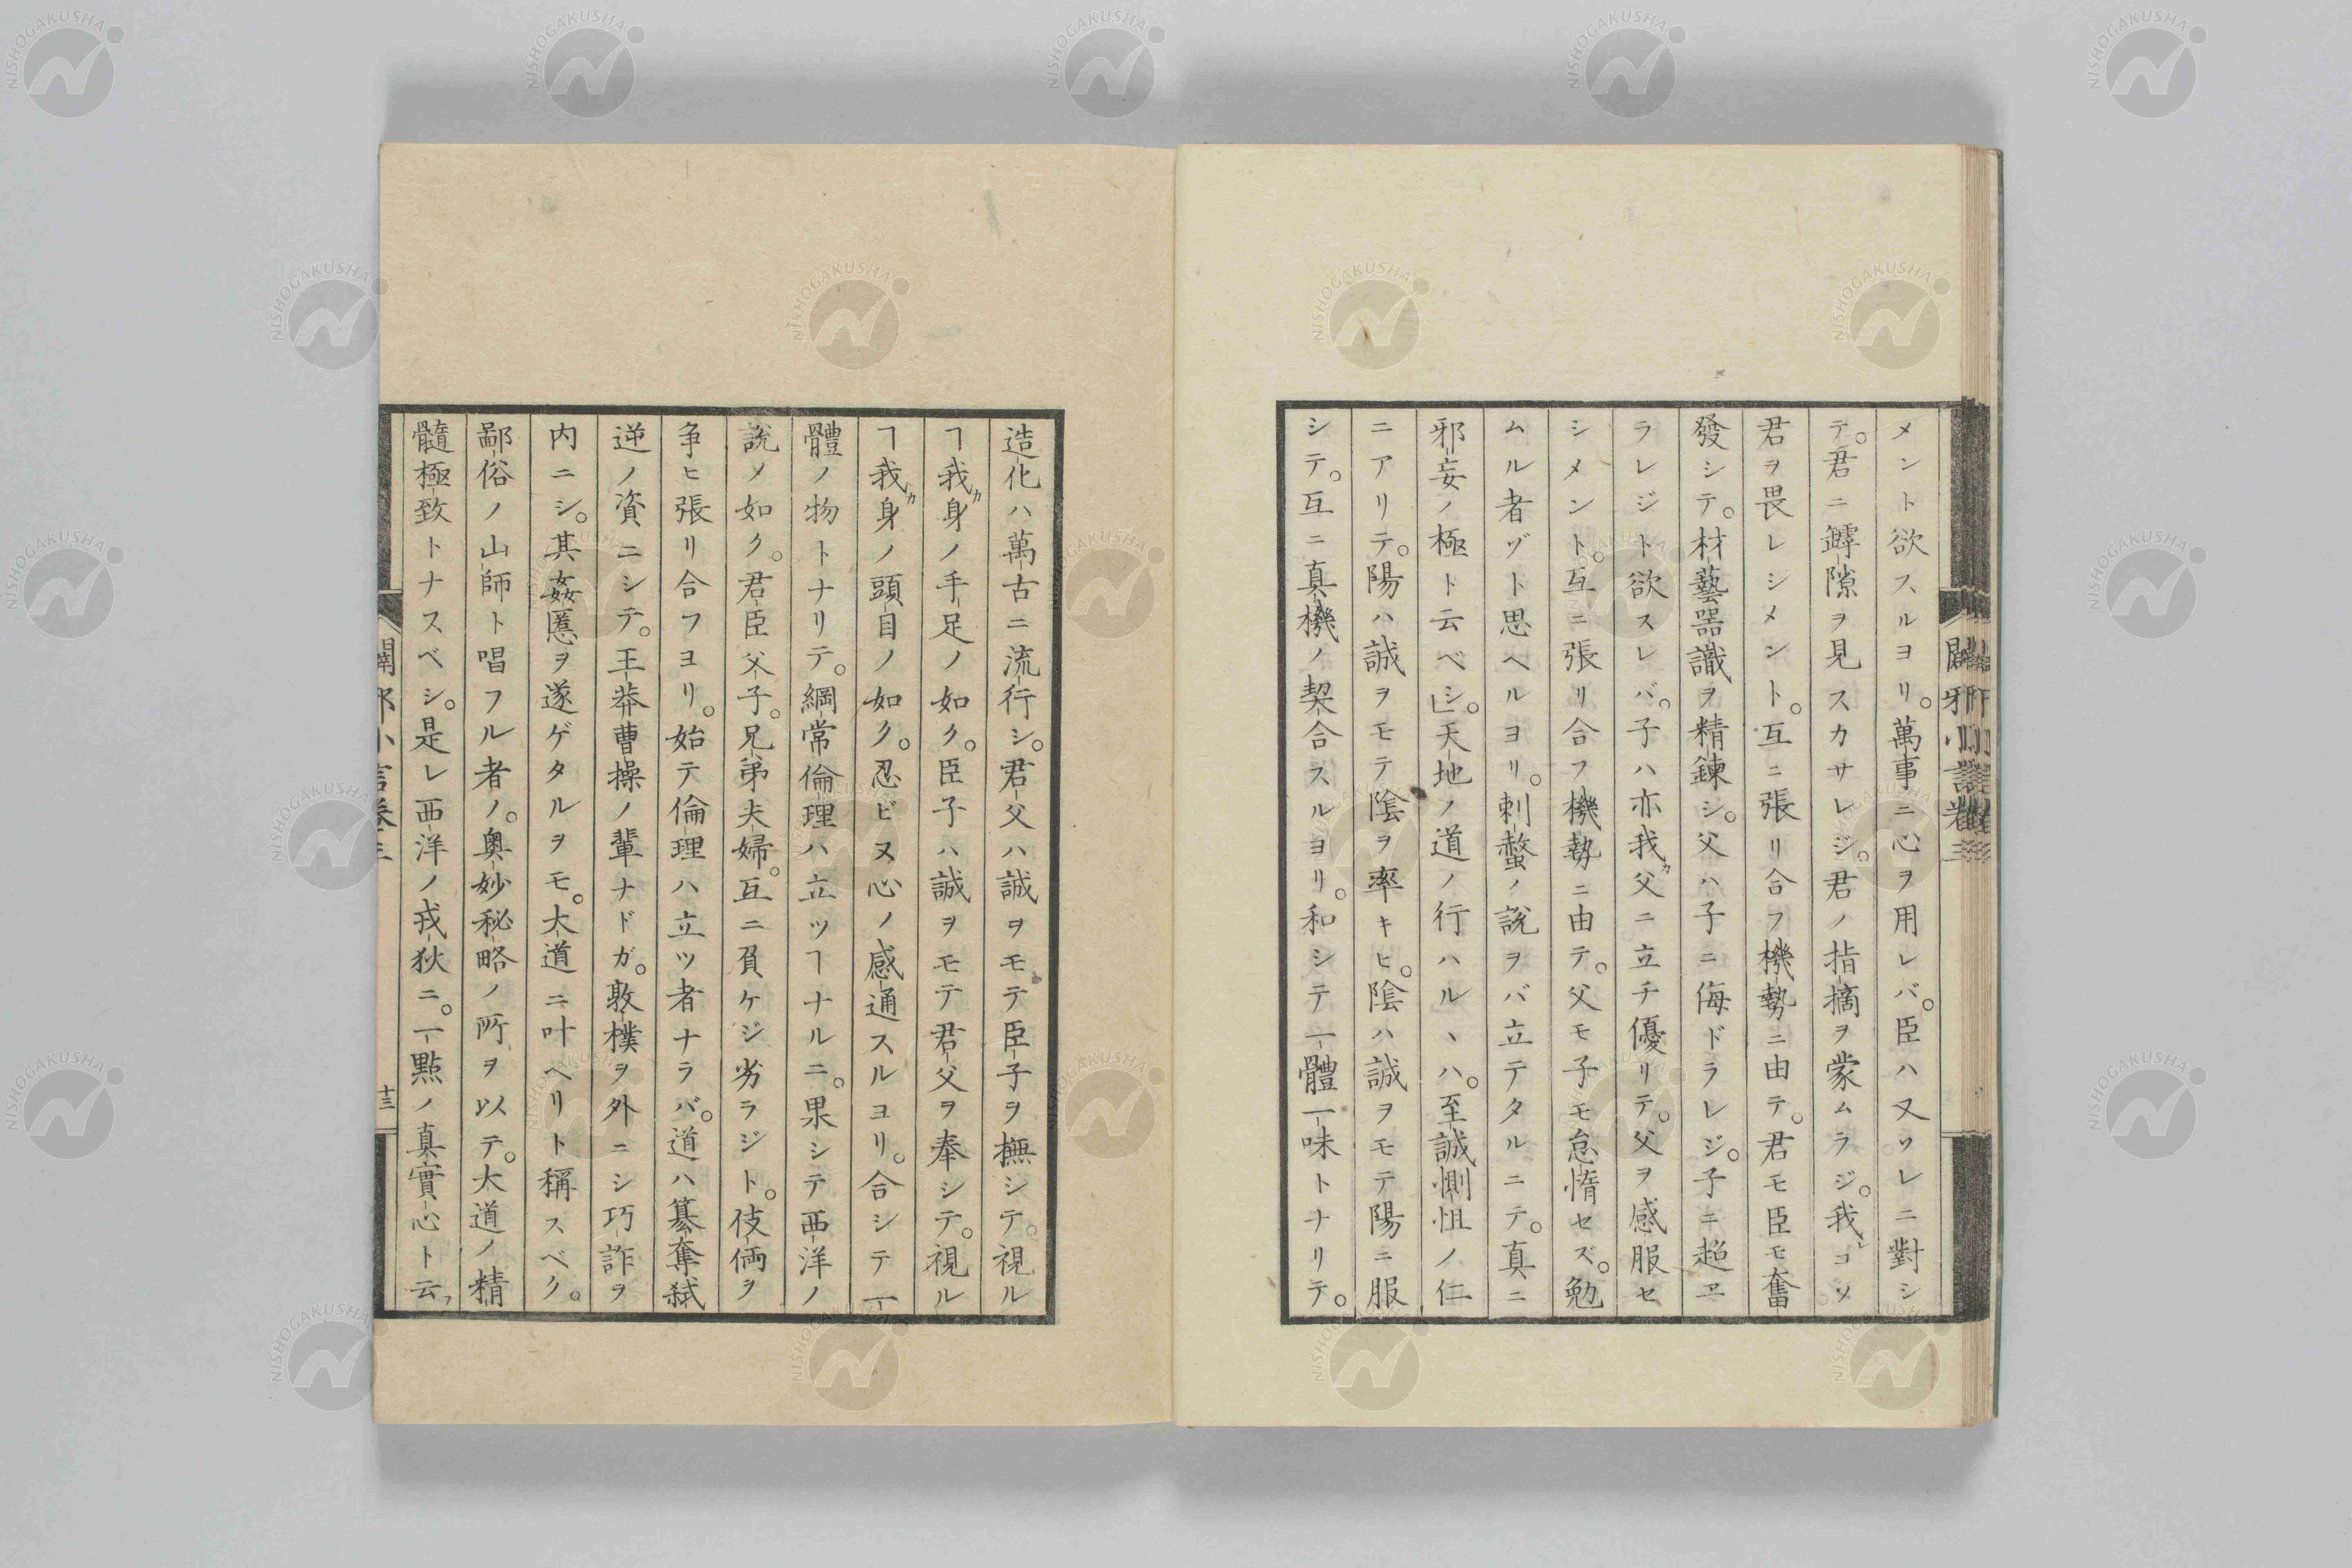 メント欲スルヨリ。萬事ニ心ヲ用レバ。臣ハ又ソレニ對シ
テ。君ニ罅隙ヲ見スカサレジ。君ノ指摘ヲ蒙ムラジ。我レコソ
君ヲ畏レシメント。互ニ張リ合フ機勢ニ由テ。君モ臣モ奮
發シテ。材藝器識ヲ精錬シ。父ハ子ニ侮ドラレジ。子ニ超ヱ
ラレジト欲スレバ。子ハ亦我ガ父ニ立チ優リテ。父ヲ感服セ
シメント。互ニ張リ合フ機勢ニ由テ。父モ子モ怠惰セズ。勉
ムル者ゾト思ヘルヨリ。刺螫ノ說ヲバ立テタルニテ。真ニ
邪妄ノ極ト云ベシ」。天地ノ道ノ行ハルヽハ。至誠惻怛ノ仁
ニアリテ。陽ハ誠ヲモテ陰ヲ率キヒ。陰ハ誠ヲモテ陽ニ服
シテ。互ニ真機ノ契合スルヨリ。和シテ一體一味トナリテ。
造化ハ萬古ニ流行シ。君父ハ誠ヲモテ臣子ヲ撫シテ。視ル
ヿ我カ身ノ手足ノ如ク。臣子ハ誠ヲモテ君父ヲ奉シテ。視ル
ヿ我カ身ノ頭目ノ如ク。忍ビヌ心ノ感通スルヨリ。合シテ一
體ノ物トナリテ。綱常倫理ハ立ツヿナルニ。果シテ西洋ノ
說ノ如ク。君臣父子。兄弟夫婦。互ニ負ケジ劣ラジト。伎倆ヲ
争ヒ張リ合フヨリ。始テ倫理ハ立ツ者ナラバ。道ハ簒奪弑
逆ノ資ニシテ。王莽曹操ノ輩ナドガ。敦樸ヲ外ニシ巧詐ヲ
内ニシ。其姦慝ヲ遂ゲタルヲモ。大道ニ叶ヘリト稱スベク。
鄙俗ノ山師ト唱フル者ノ。奥妙秘略ノ所ヲ以テ。大道ノ精
髓極致トナスベシ。是レ西洋ノ戎狄ニ。一點ノ真實心ト云フ
闢邪小言卷三
十三